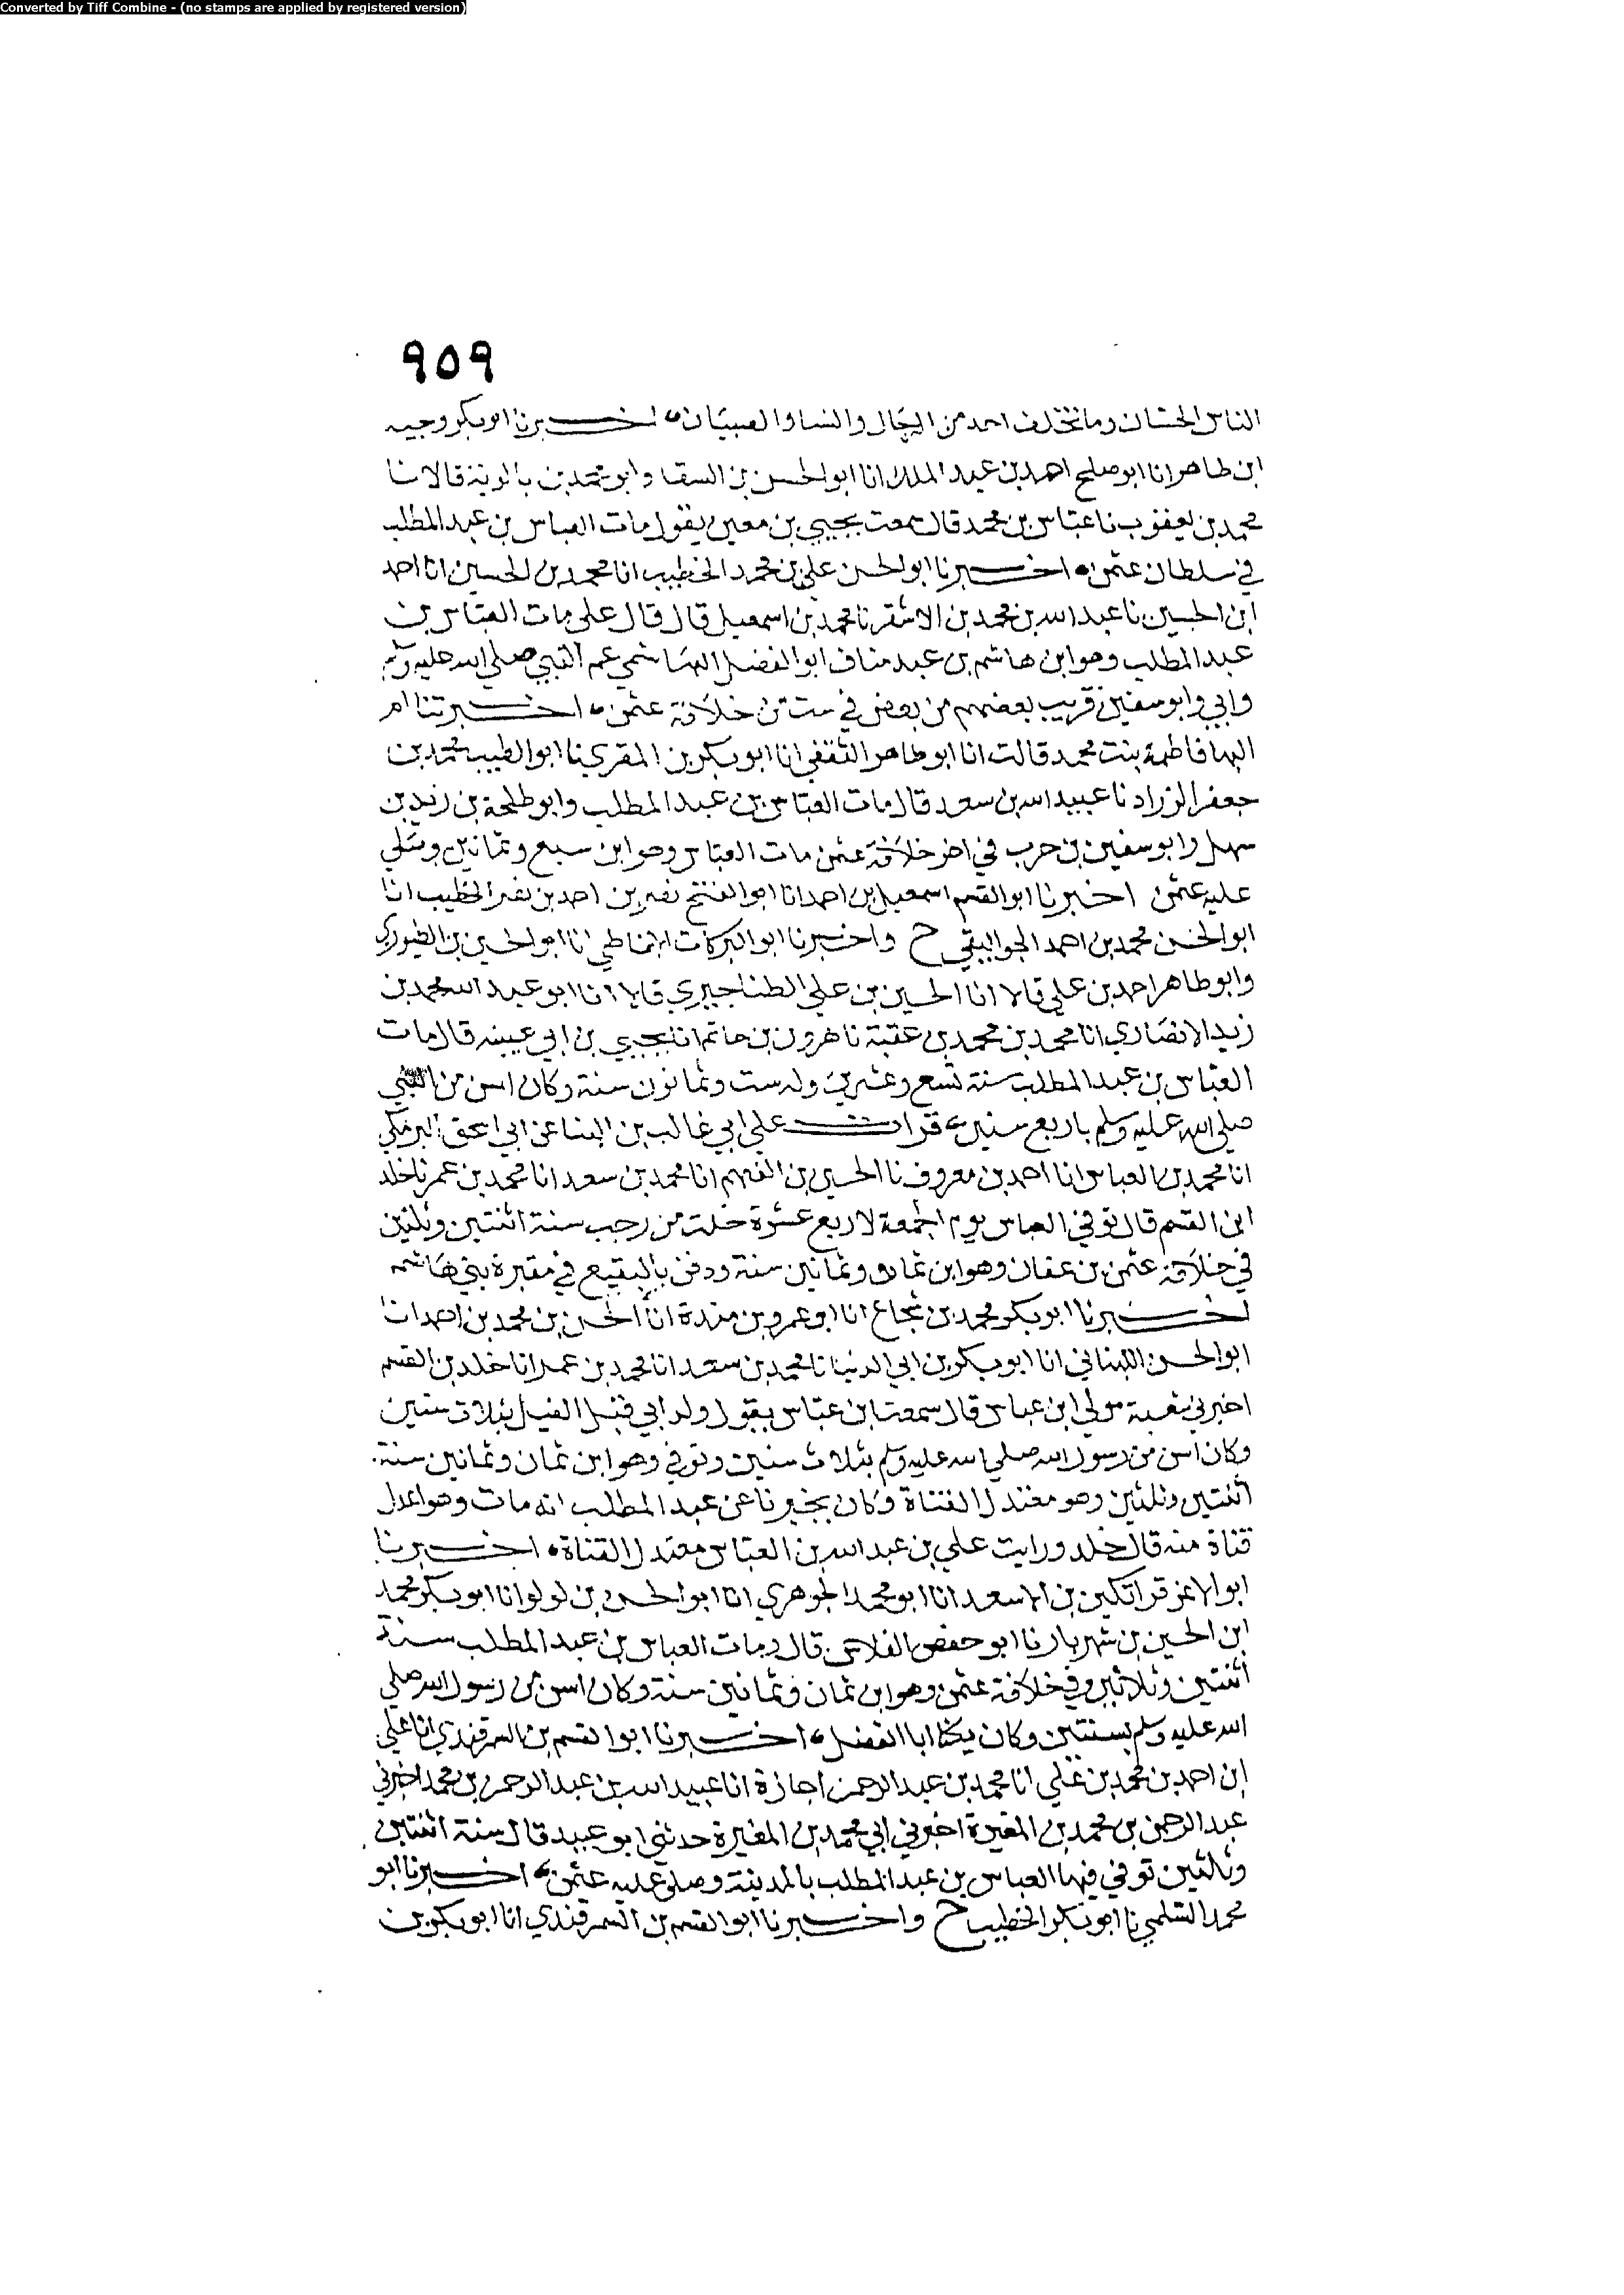 Converted by Tiff Combine - (no stamps are applied by registered version)
٩٥٩
الناس الحشان وما تخلف احد من الرجال والنسا والصبيان اخبرنا ابو بكر وجيه
ابن طاهر انا ابو صلح احمد بن عبد الملك انا ابو الحسن بن السقا وابو محمد بن بالوية قالا نا
محمد بن يعقوب نا عباس بن محمد قال سمعت يحيي بن معين يقول مات العباس بن عبد المطلب
في سلطان عثمن اخبرنا ابو الحسن علي بن محمد الخطيب انا محمد بن الحسين انا احمد
ابن الحسين نا عبد الله بن محمد بن الاشقر نا محمد بن اسمعيل قال قال علي مات العباس بن
عبد المطلب وهو ابن هاشم بن عبد مناف ابو الفضل الهاشمي عم النبي صلي الله عليه وسلم
وابي وابو سفين قريب بعضهم من بعض في ست من خلافة عثمن اخبرتنا ام
البها فاطمة بنت محمد قالت انا ابو طاهر الثقفي انا ابو بكر بن المقري نا ابو الطيب محمد بن
جعفر الزراد نا عبيد الله بن سعد قال مات العباس بن عبد المطلب وابو طلحة بن زيد بن
سهل وابو سفين بن حرب في اخر خلافة عثمن مات العباس وهو ابن سبع وثمانين وصلي
عليه عثمن اخبرنا ابو القسم اسمعيل بن احمد انا ابو الفتح نصر بن احمد بن نصر الخطيب انا
ابو الحسن محمد بن احمد الجواليقي ح واخبرنا ابو البركات الانماطي انا ابو الحسين بن الطيوري
وابو طاهر احمد بن علي قالا انا الحسين بن علي الطناجيري قالا انا ابو عبد الله محمد بن
زيد الانصاري انا محمد بن محمد بن عقبة نا هرون بن حاتم انا يحيي بن ابي عيينه قال مات
العباس بن عبد المطلب سنة تسع وعشرين وله ست وثمانون سنة وكان اسن من النبي
صلي الله عليه وسلم باربع سنين قرات علي ابي غالب بن البنا عن ابي اسحق البرمكي
انا محمد بن العباس انا احمد بن معروف نا الحسين بن الفهم انا محمد بن سعد انا محمد بن عمر نا خلد
ابن القسم قال توفي العباس يوم الجمعة لاربع عشرة خلت من رجب سنة اثنتين وثلثين
في خلافة عثمن بن عفان وهو ابن ثمان وثمانين سنة ودفن بالبقيع في مقبرة بني هاشم
اخبرنا ابو بكر محمد بن شجاع انا ابو عمرو بن مندة انا الحسن بن محمد بن احمد انا
ابو الحسن اللبناني انا ابو بكر بن ابي الدنيا نا محمد بن سعد انا محمد بن عمر انا خلد بن القسم
اخبرني شعبة مولي ابن عباس قال سمعت ابن عباس يقول ولد ابي قبل الفيل بثلاث سنين
وكان اسن من رسول الله صلي الله عليه وسلم بثلاث سنين وتوفي وهو ابن ثمان وثمانين سنة
اثنتين وثلثين وهو معتدل القناة وكان يخبرنا عن عبد المطلب انه مات وهو اعدل
قناة منه قال خلد ورايت علي بن عبد الله بن العباس معتدل القناة اخبرنا
ابو الاعز قراتكين بن الاسعد انا ابو محمد الجوهري انا ابو الحسن بن لولو انا ابو بكر محمد
ابن الحسين بن شهريار نا ابو حفص الفلاس قال ومات العباس بن عبد المطلب سنة
اثنتين وثلاثين وفي خلافة عثمن وهو ابن ثمان وثمانين سنة وكان اسن من رسول الله صلي
الله عليه وسلم بسنتين وكان يكنا ابا الفضل اخبرنا ابو القسم بن السمرقندي انا علي
بن احمد بن محمد بن علي انا محمد بن عبد الرحمن اجازة انا عبيد الله بن عبد الرحمن بن محمد اخبرني
عبد الرحمن بن محمد بن المغيرة اخبرني ابي محمد بن المغيرة حدثني ابو عبيد قال سنة اثنتين
وثالثين توفي فيها العباس بن عبد المطلب بالمدينة وصلي عليه عثمن اخبرنا ابو
محمد السلمي نا ابو بكر الخطيب ح واخبرنا ابو القسم بن السمرقندي انا ابو بكر بن